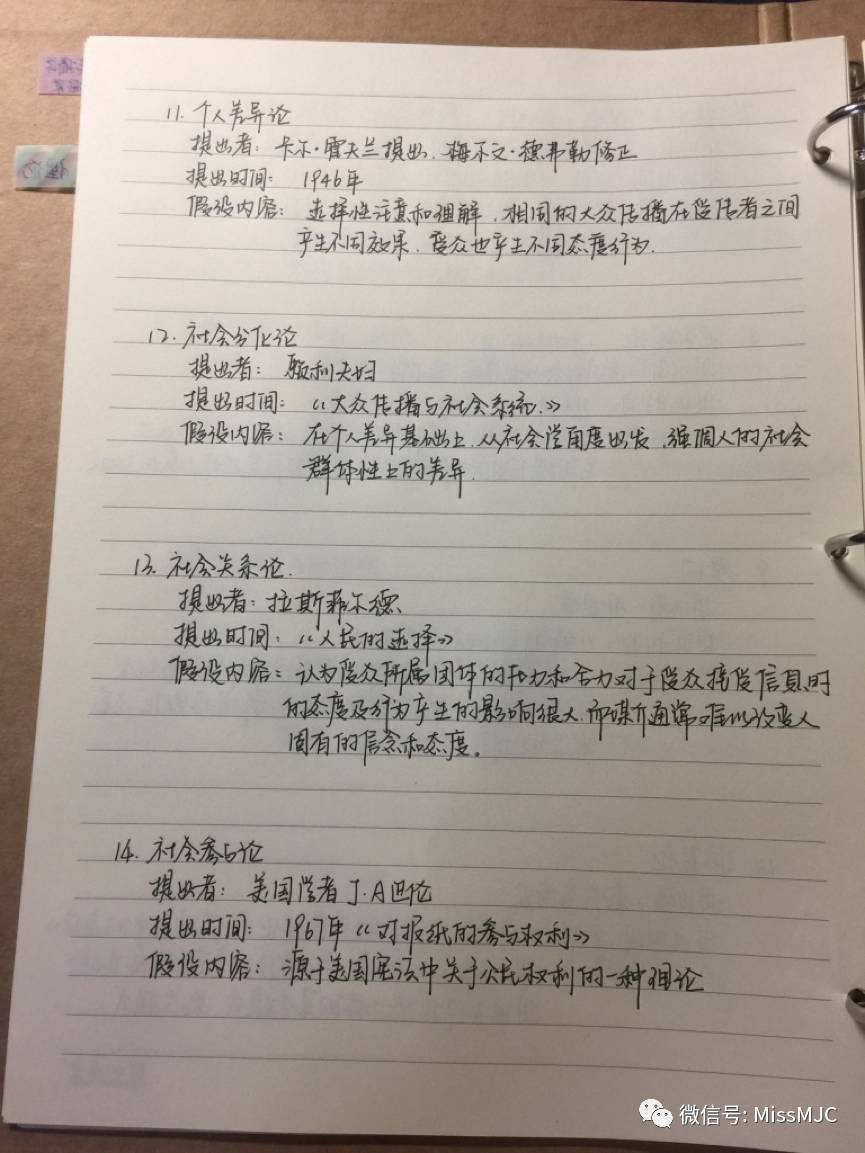 11. 个人差异论
提出者：卡尔·霍夫兰提出，梅尔文·德弗勒修正
提出时间：1946年
假设内容：选择性注意和理解，相同的大众传播在受传者之间
产生不同效果，受众也产生不同态度行为.
12. 社会分化论
提出者：赖利夫妇
提出时间：《大众传播与社会系统》
假设内容：在个人差异基础上，从社会学角度出发，强调人的社会
群体性上的差异.
13. 社会关系论.
提出者：拉斯菲尔德
提出时间：《人民的选择》
假设内容：认为受众所属团体的压力和合力对于受众接受信息时
的态度及行为产生的影响很大，而媒介通常难以改变人
固有的信念和态度。
14. 社会参与论
提出者：美国学者J.A巴伦
提出时间：1967年《对报纸的参与权利》
假设内容：源于美国宪法中关于公民权利的一种理论
微信号: MissMJC